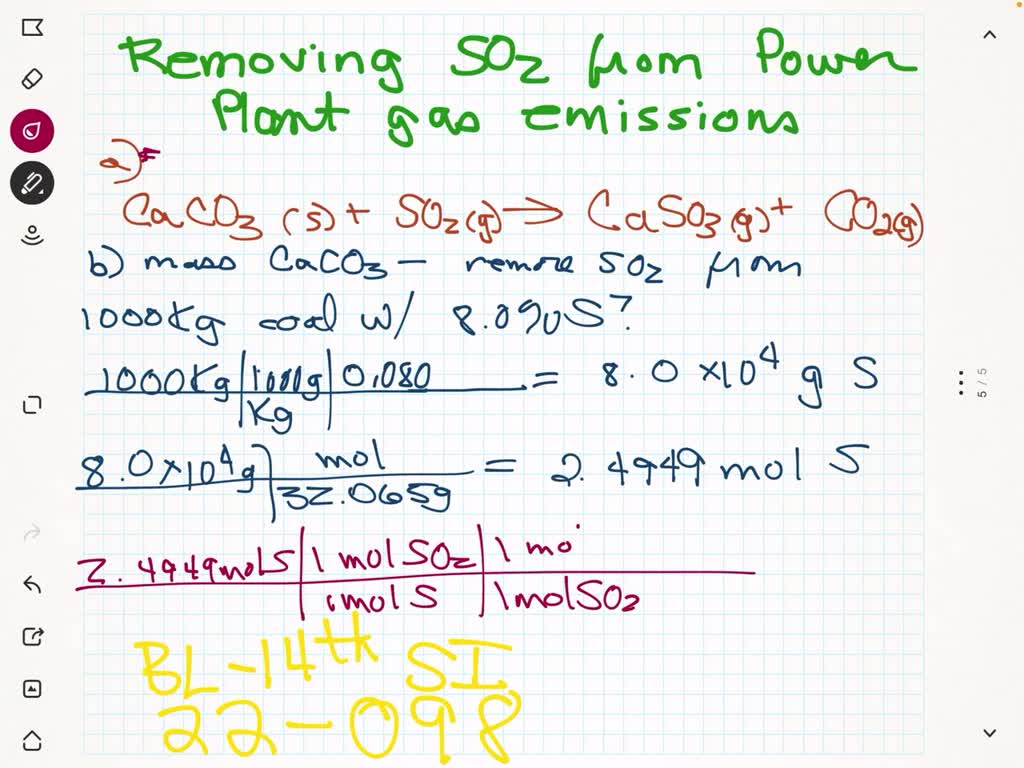 Removing SO2 from Power
Plant gas emissions
a)
CaCO3 (s) + SO2(g) → CaSO3(g) + CO2(g)
b) mass CaCO3 - remove SO2 from
1000Kg coal w/ 8.0%S?
1000Kg | 1000g | 0.080 = 8.0 ×10⁴ g S
Kg
8.0×10⁴g | mol = 2.4949 mol S
32.065g
2.4949molS | 1 mol SO2 | 1 mo
1molS | 1molSO2
BL-14th SI
22-098
5/5